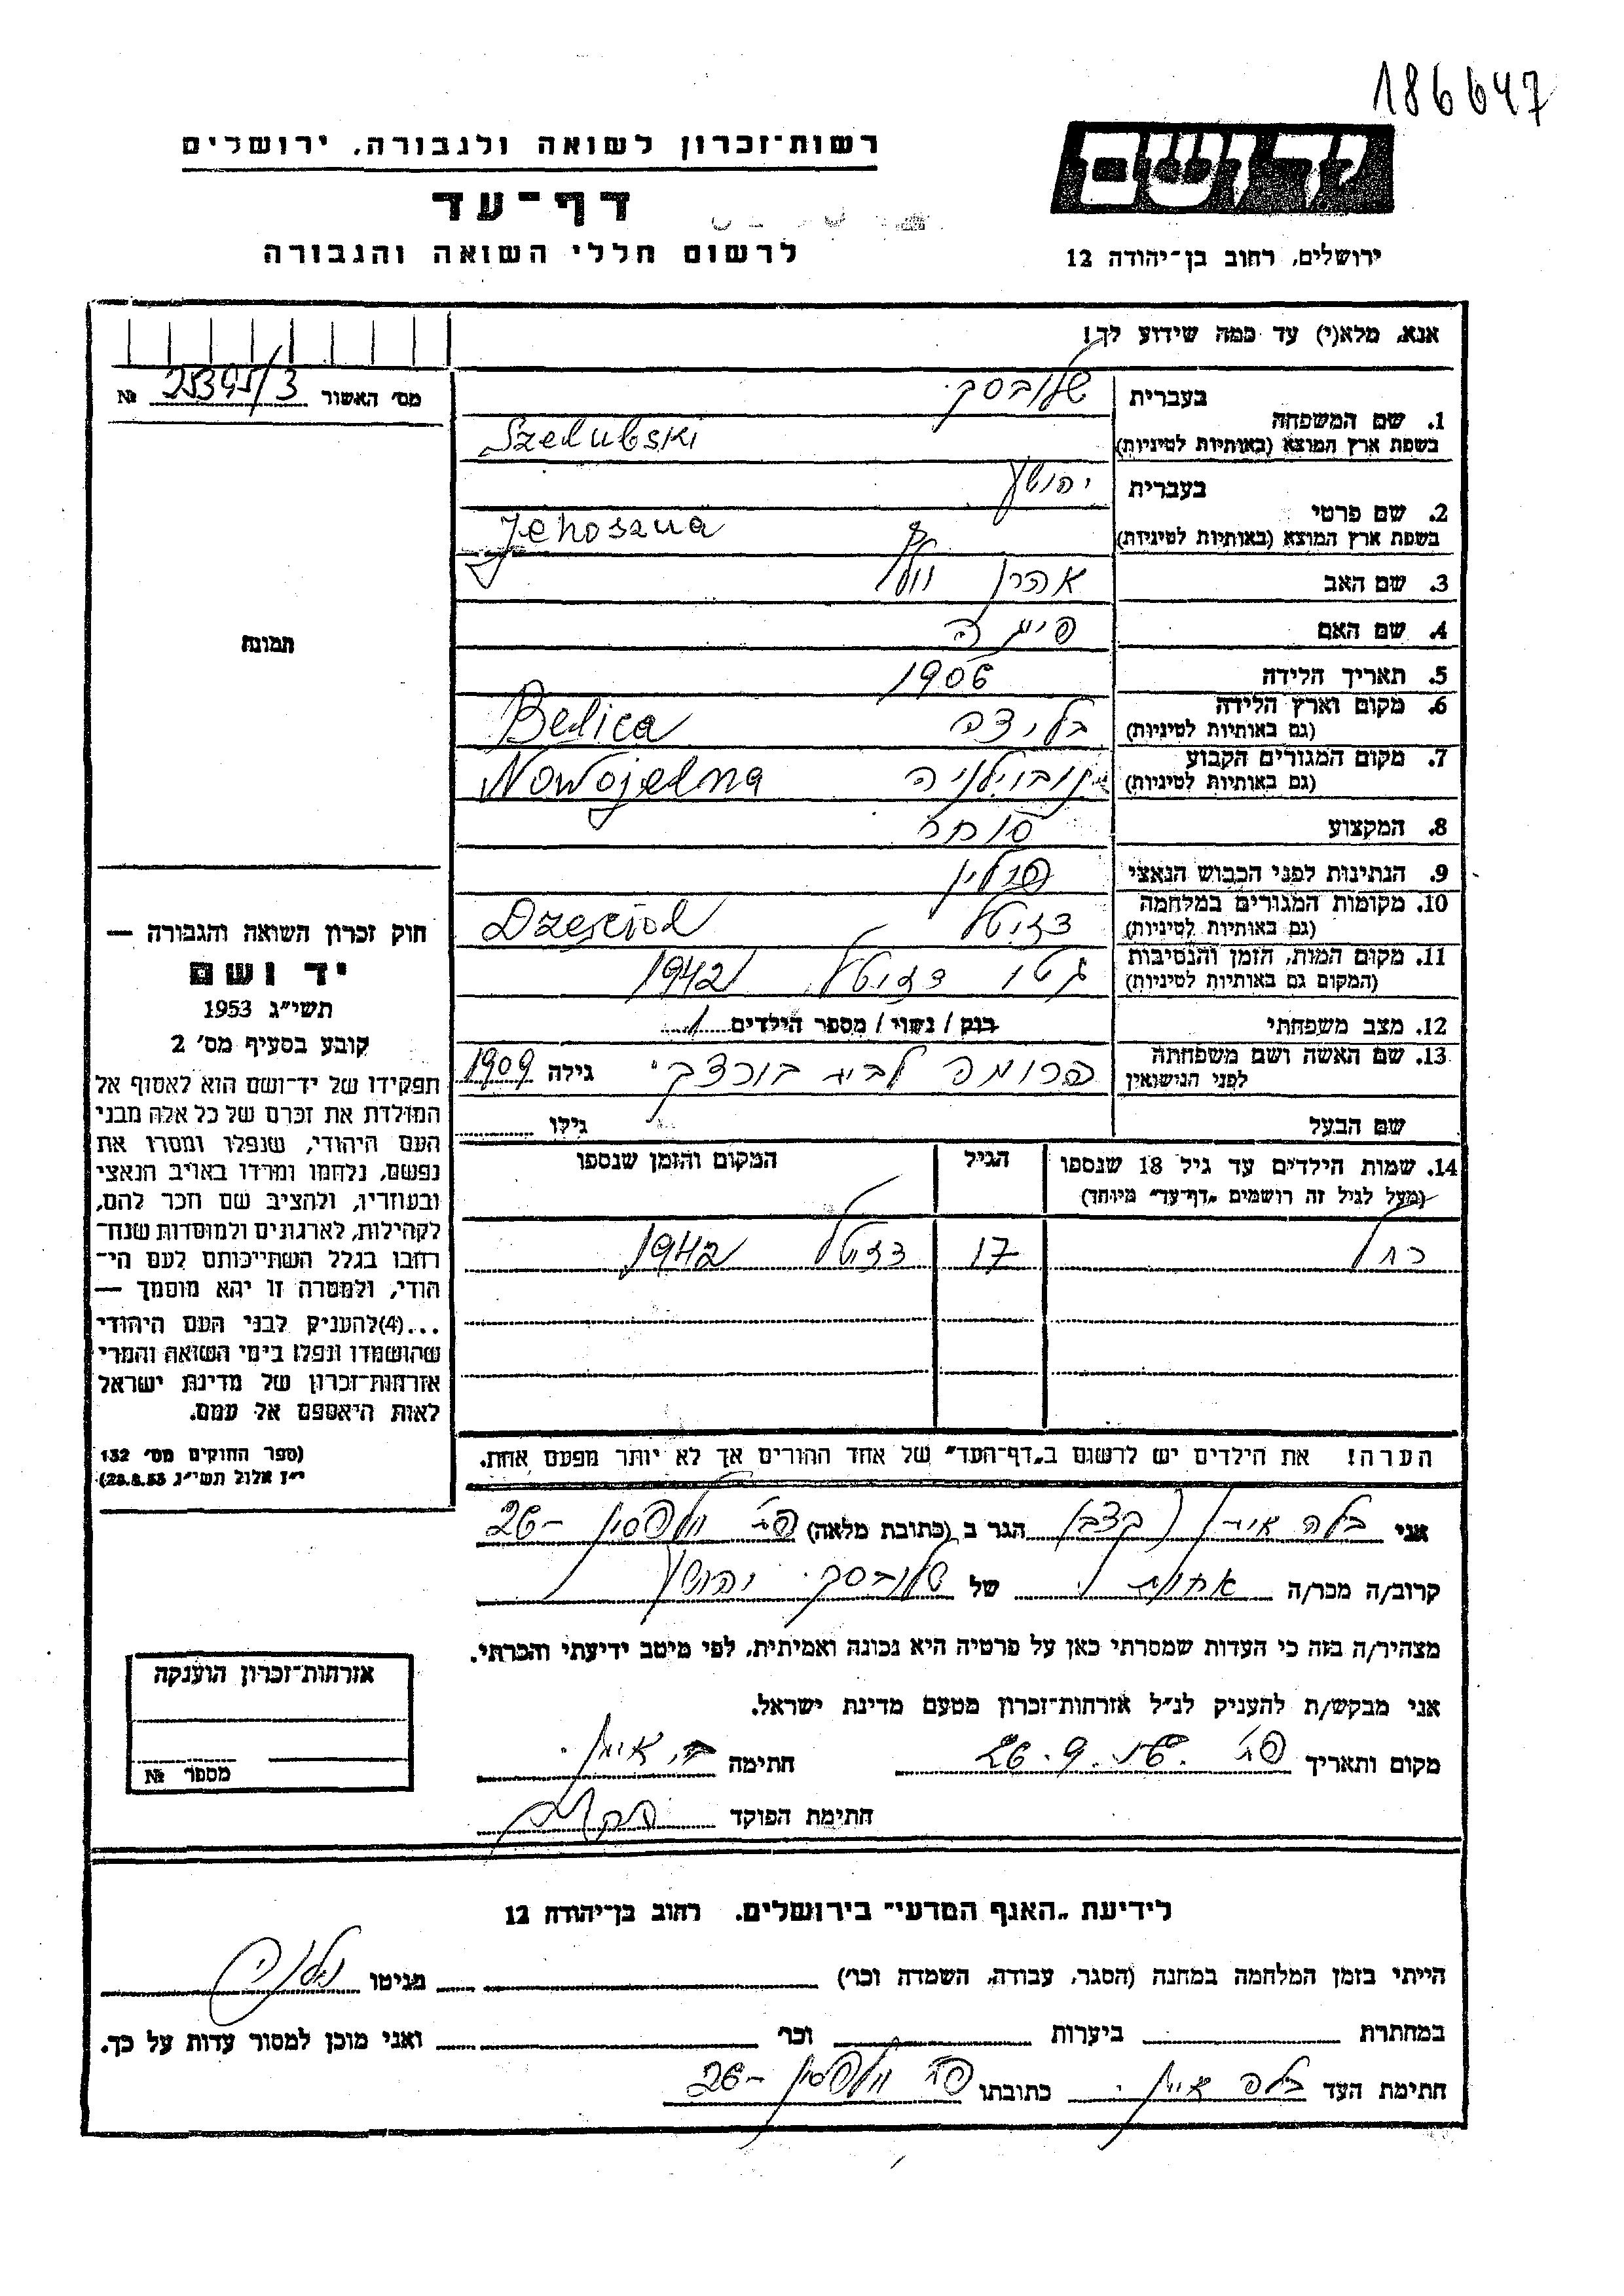 186647
רשות־זכרון לשואה ולגבורה, ירושלים
יד ושם
דף־עד
לרשום חללי השואה והגבורה
ירושלים, רחוב בן־יהודה 12
אנא, מלא(י) עד כמה שידוע לך!
מס' האשור 25395/3 №
בעברית שלובסקי
1. שם המשפחה
בשפת ארץ המוצא (באותיות לטיניות) Szelubski
בעברית יהושע
2. שם פרטי
בשפת ארץ המוצא (באותיות לטיניות) Jehoszua
3. שם האב אהרן וולף
4. שם האם
5. תאריך הלידה 1906
6. מקום וארץ הלידה בליצה Belica
(גם באותיות לטיניות)
7. מקום המגורים הקבוע נובוילניה Nowojelna
(גם באותיות לטיניות)
8. המקצוע סוחר
9. הנתינות לפני הכבוש הנאצי פולין
10. מקומות המגורים במלחמה זטל
(גם באותיות לטיניות)
11. מקום המות, הזמן והנסיבות גטו 1942
(המקום גם באותיות לטיניות)
12. מצב משפחתי רווק / נשוי / מספר הילדים 1
13. שם האשה ושם משפחתה פרומה לבית גילה 1909
לפני הנישואין
שם הבעל גילו
14. שמות הילדים עד גיל 18 שנספו הגיל המקום והזמן שנספו
(מעל לגיל זה רושמים „דף־עד" מיוחד)
רחל 17 1942
הערה! את הילדים יש לרשום ב„דף־העד" של אחד ההורים אך לא יותר מפעם אחת.
תמונה
חוק זכרון השואה והגבורה —
יד ושם
תשי"ג 1953
קובע בסעיף מס' 2
תפקידו של יד־ושם הוא לאסוף אל
המולדת את זכרם של כל אלה מבני
העם היהודי, שנפלו ומסרו את
נפשם, נלחמו ומרדו באויב הנאצי
ובעוזריו, ולהציב שם וזכר להם,
לקהילות, לארגונים ולמוסדות שנח־
רבו בגלל השתייכותם לעם הי־
הודי, ולמטרה זו יהא מוסמך —
...(4)להעניק לבני העם היהודי
שהושמדו ונפלו בימי השואה והמרי
אזרחות־זכרון של מדינת ישראל
לאות היאספם אל עמם.
(ספר החוקים מס' 132
י"ז אלול תשי"ג 28.8.53)
אני בלה הגר ב (כתובת מלאה) פ"ת וולפסון 26
קרוב/ה מכר/ה אחות של שלובסקי יהושע
מצהיר/ה בזה כי העדות שמסרתי כאן על פרטיה היא נכונה ואמיתית, לפי מיטב ידיעתי והכרתי.
אני מבקש/ת להעניק לנ"ל אזרחות־זכרון מטעם מדינת ישראל.
מקום ותאריך פ"ת חתימה
חתימת הפוקד
אזרחות־זכרון הוענקה
מספר №
לידיעת „האגף המדעי" בירושלים, רחוב בן־יהודה 12
הייתי בזמן המלחמה במחנה (הסגר, עבודה, השמדה וכו') בגיטו
במחתרת ביערות וכו' ואני מוכן למסור עדות על כך.
חתימת העד בלה כתובתו פ"ת וולפסון 26